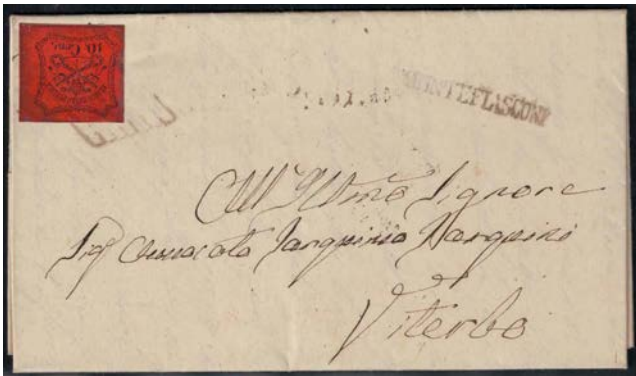 10 Cent.
MONTEFIASCONE
All'Illmo Signore
Sig Avvocato Tarquinio Tarquini
Viterbo